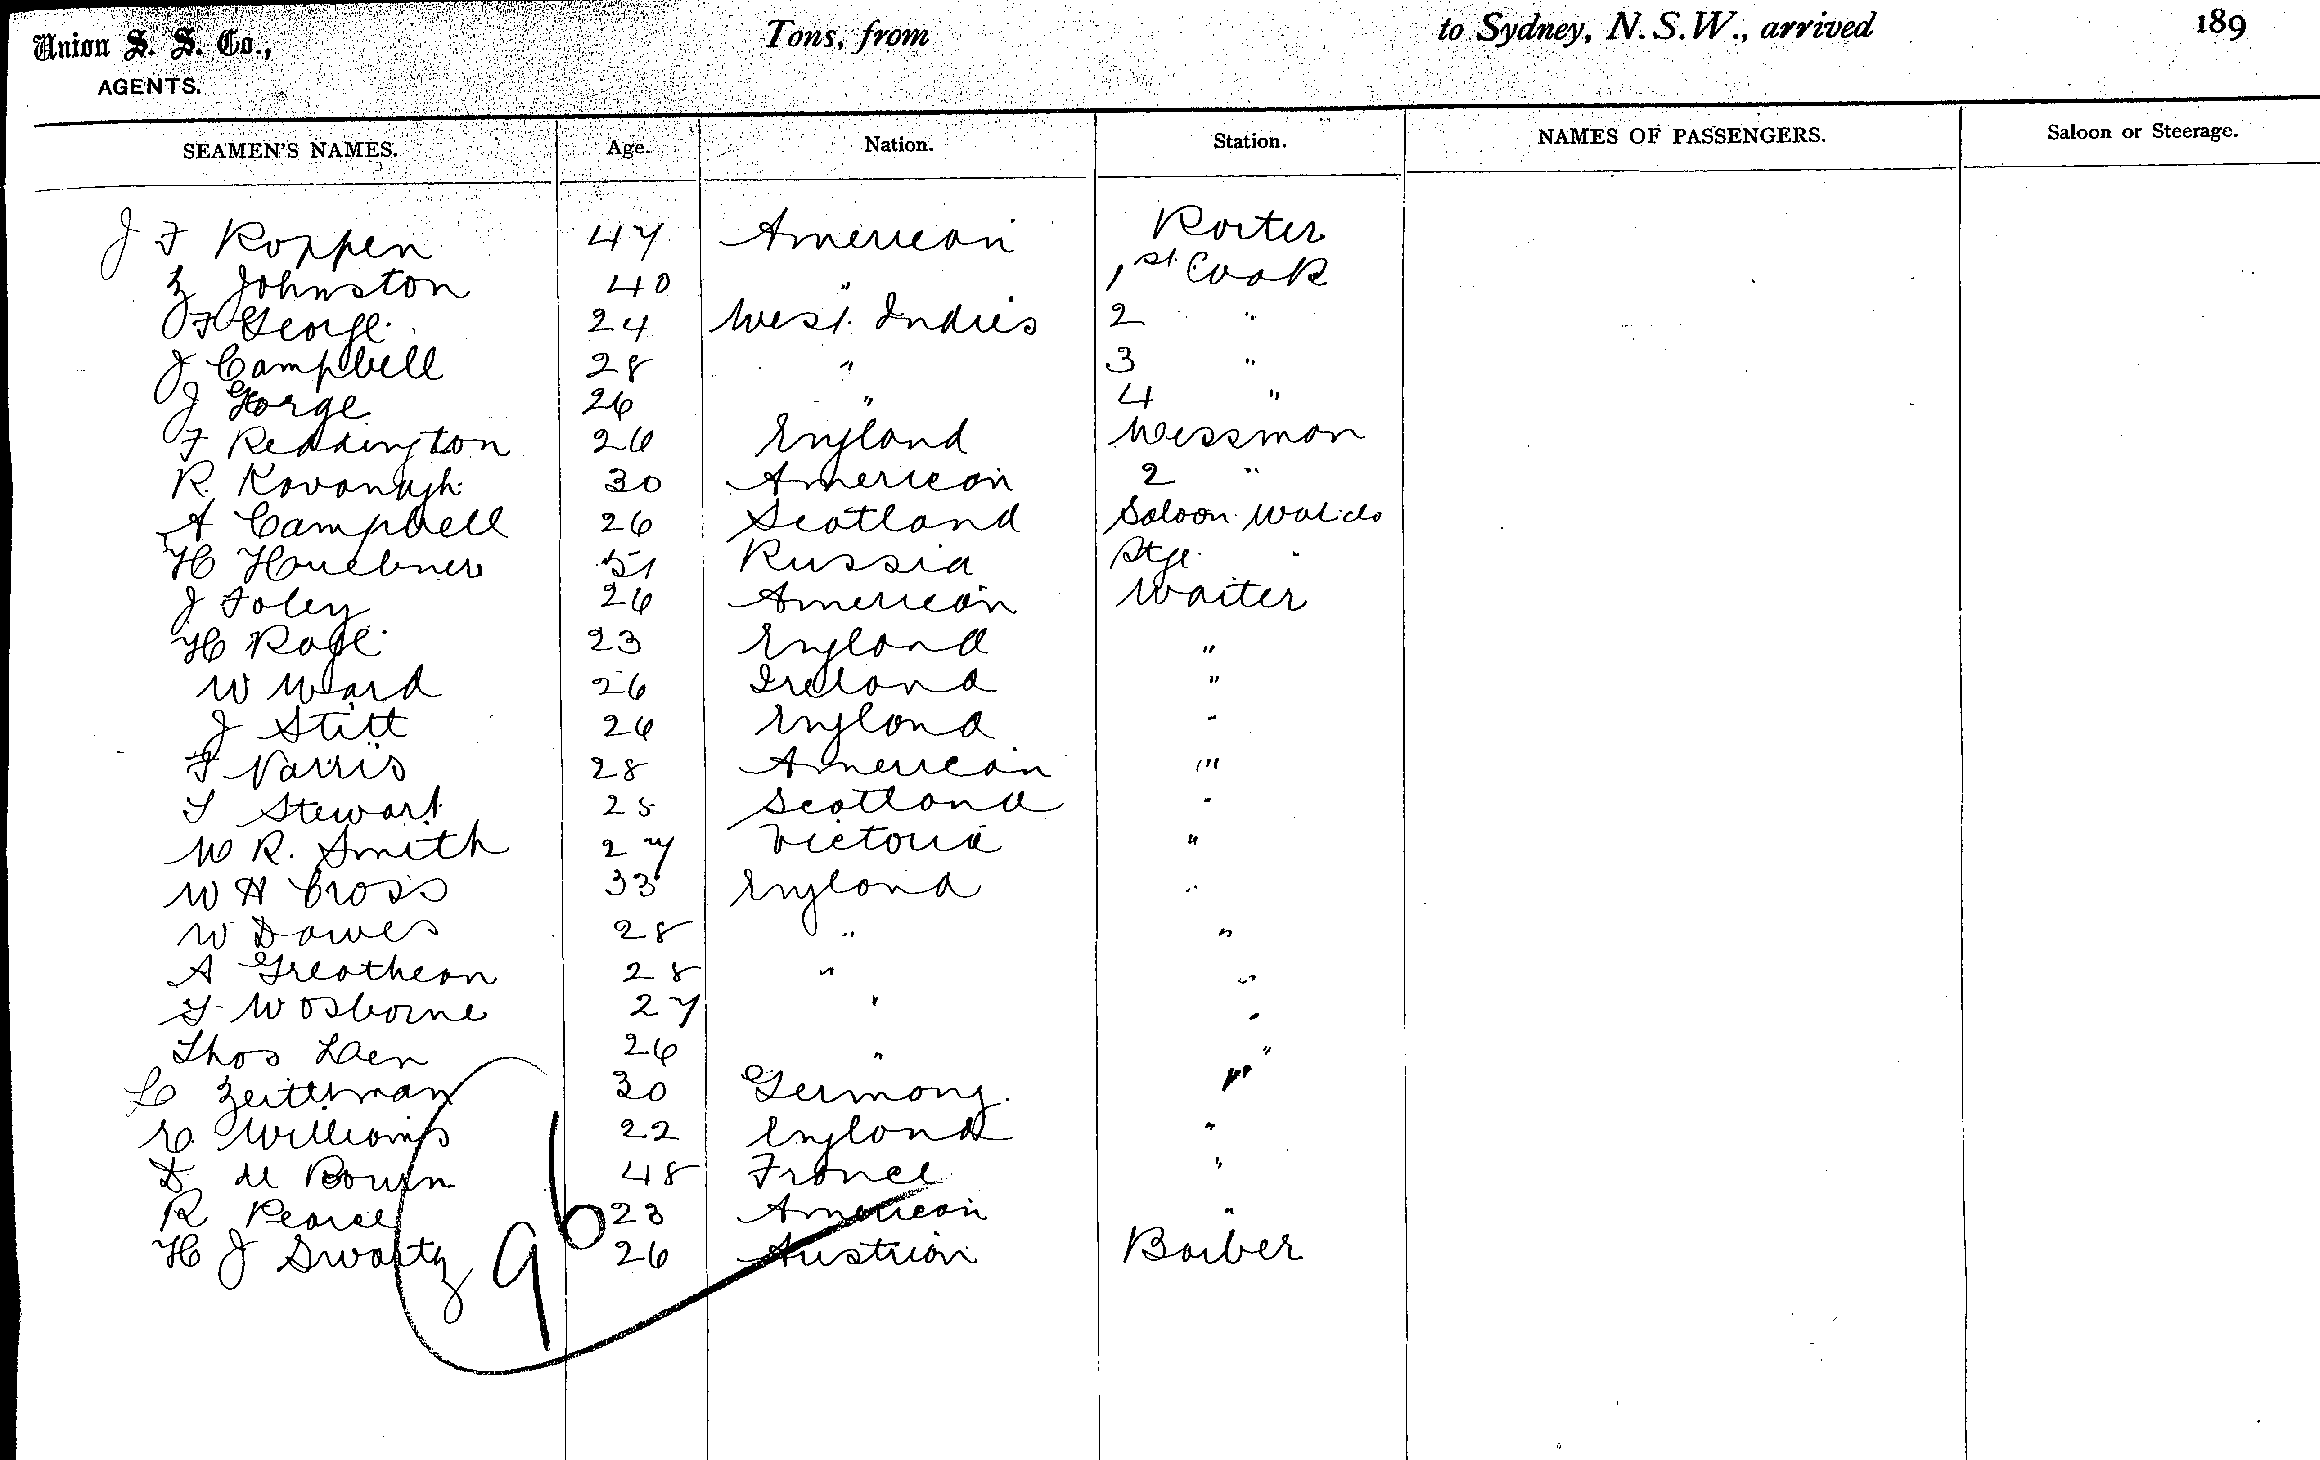 Union S. S. Co., Tons, from to Sydney, N.S.W., arrived 189
AGENTS.
SEAMEN'S NAMES. Age. Nation. Station. NAMES OF PASSENGERS. Saloon or Steerage.
J F Koppen 47 American Porter
Z Johnston 40 " 1st Cook
F George 24 West Indies 2 "
J Campbell 28 " 3 "
J Gorge 26 " 4 "
F Reddington 26 England Messman
R Kavanagh 30 American 2 "
A Campbell 26 Scotland Saloon
H Huebner 51 Russia Stge "
J Foley 26 American Waiter
H Page 23 England "
W Ward 26 Ireland "
J Stitt 26 England "
F Narris 28 American "
T Stewart 28 Scotland "
W R. Smith 27 Victoria "
W H Cross 33 England "
W Dawes 28 " "
A Greathean 28 " "
T W Osborne 27 " "
Thos 26 " "
Zeiterman 30 Germany "
E Williams 22 England "
D de Bourn 48 France "
R Pearce 23 American "
H J Swartz 26 Austrian Barber
96